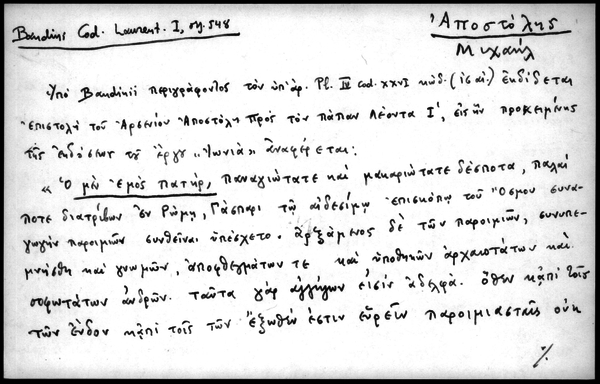 Bandini Cod. Laurent. I, σελ. 548
Ἀποστόλης
Μιχαήλ
Ὑπὸ Bandinii περιγράφοντος τὸν ὑπ' ἀρ. Pl. IV cod. XXVI κώδ. (ις αἰ.) ἐκδίδεται
ἐπιστολὴ τοῦ Ἀρσενίου Ἀποστόλη πρὸς τὸν πάπαν Λέοντα Ι', εἰς ἣν προκειμένης
τῆς ἐκδόσεως τοῦ ἔργου «Ἰωνιὰ» ἀναφέρεται:
« Ὁ μὲν ἐμὸς πατήρ, παναγιώτατε καὶ μακαριώτατε δέσποτα, πάλαι
ποτε διατρίβων ἐν Ρώμῃ, Γάσπαρι τῷ αἰδεσίμῳ ἐπισκόπῳ τοῦ Ὄσμου συνα-
γωγὴν παροιμιῶν συνθεῖναι ὑπέσχετο. ἀρξάμενος δὲ τῶν παροιμιῶν, συνυπε-
μνήσθη καὶ γνωμῶν, ἀποφθεγμάτων τε καὶ ὑποθηκῶν ἀρχαιοτάτων καὶ
σοφωτάτων ἀνδρῶν. ταῦτα γὰρ ἀλλήλων εἰσὶν ἀδελφά. ὅθεν κἀπὶ τοῖς
τῶν ἔνδον κἀπὶ τοῖς τῶν ἔξωθέν ἐστιν εὑρεῖν παροιμιασταῖς οὐκ
./.